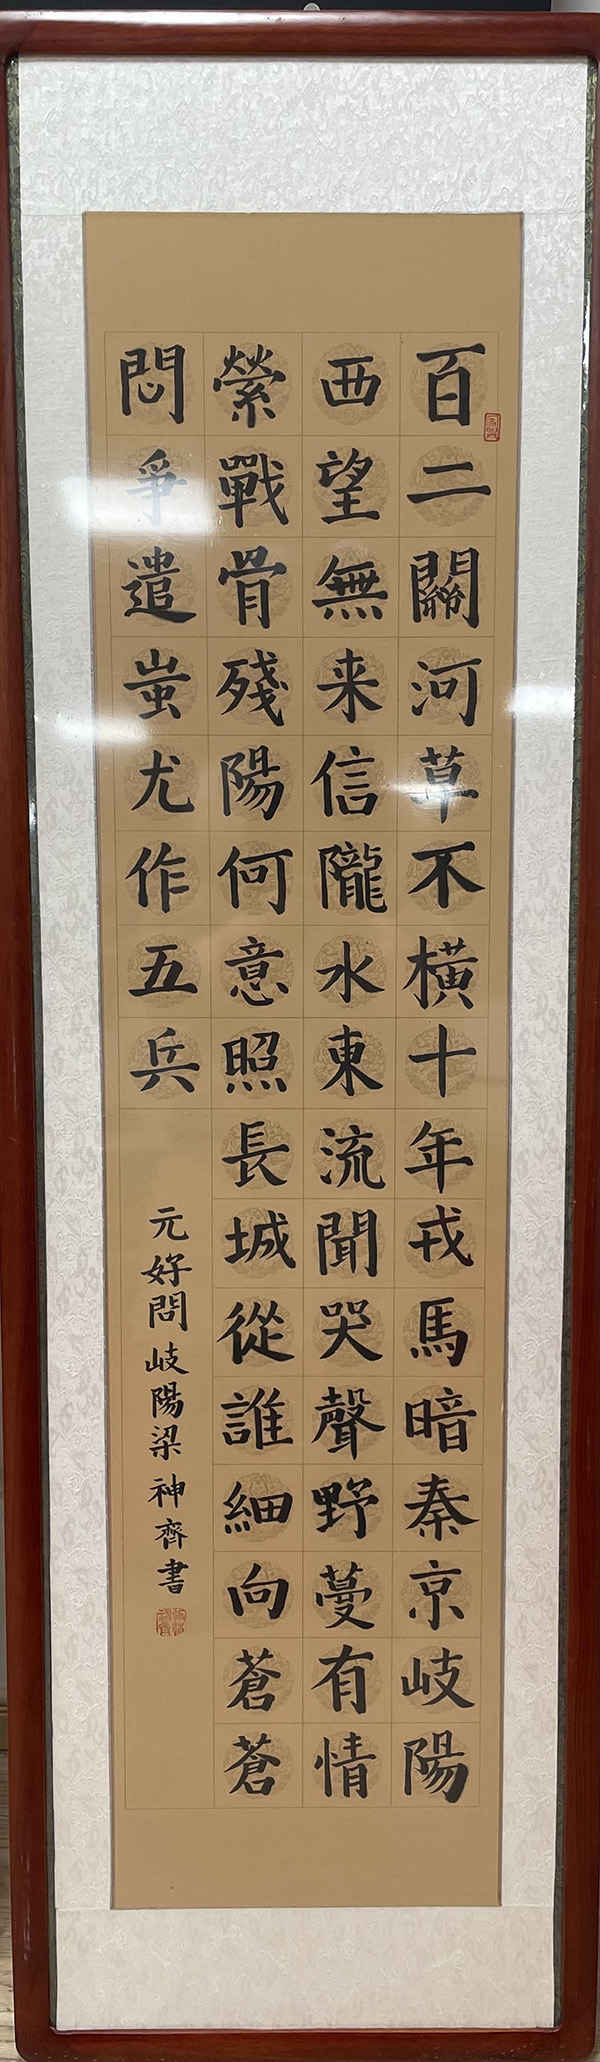 百二關河草不橫十年戎馬暗秦京岐陽
西望無来信隴水東流聞哭聲野蔓有情
縈戰骨殘陽何意照長城從誰細向蒼蒼
問爭遣蚩尤作五兵
元好問岐陽梁神齊書